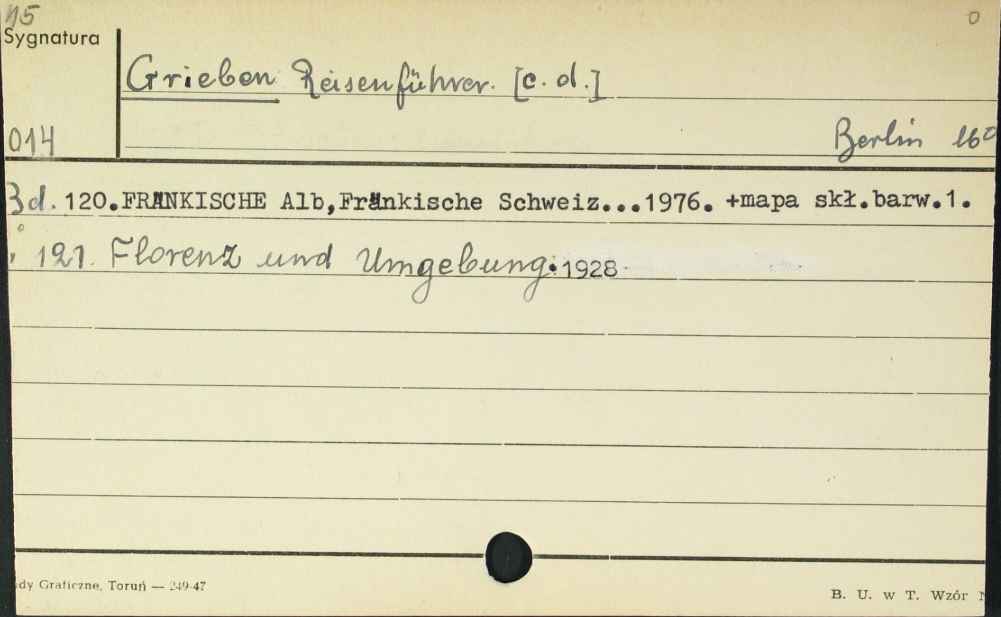 15 0
Sygnatura
Grieben Reisenführer. [c. d.]
014 Berlin 16°
Bd. 120.FRÄNKISCHE Alb,Fränkische Schweiz...1976. +mapa skł.barw.1.
" 121. Florenz und Umgebung.1928
dy Graficzne, Toruń — 249-47 B. U. w T. Wzór